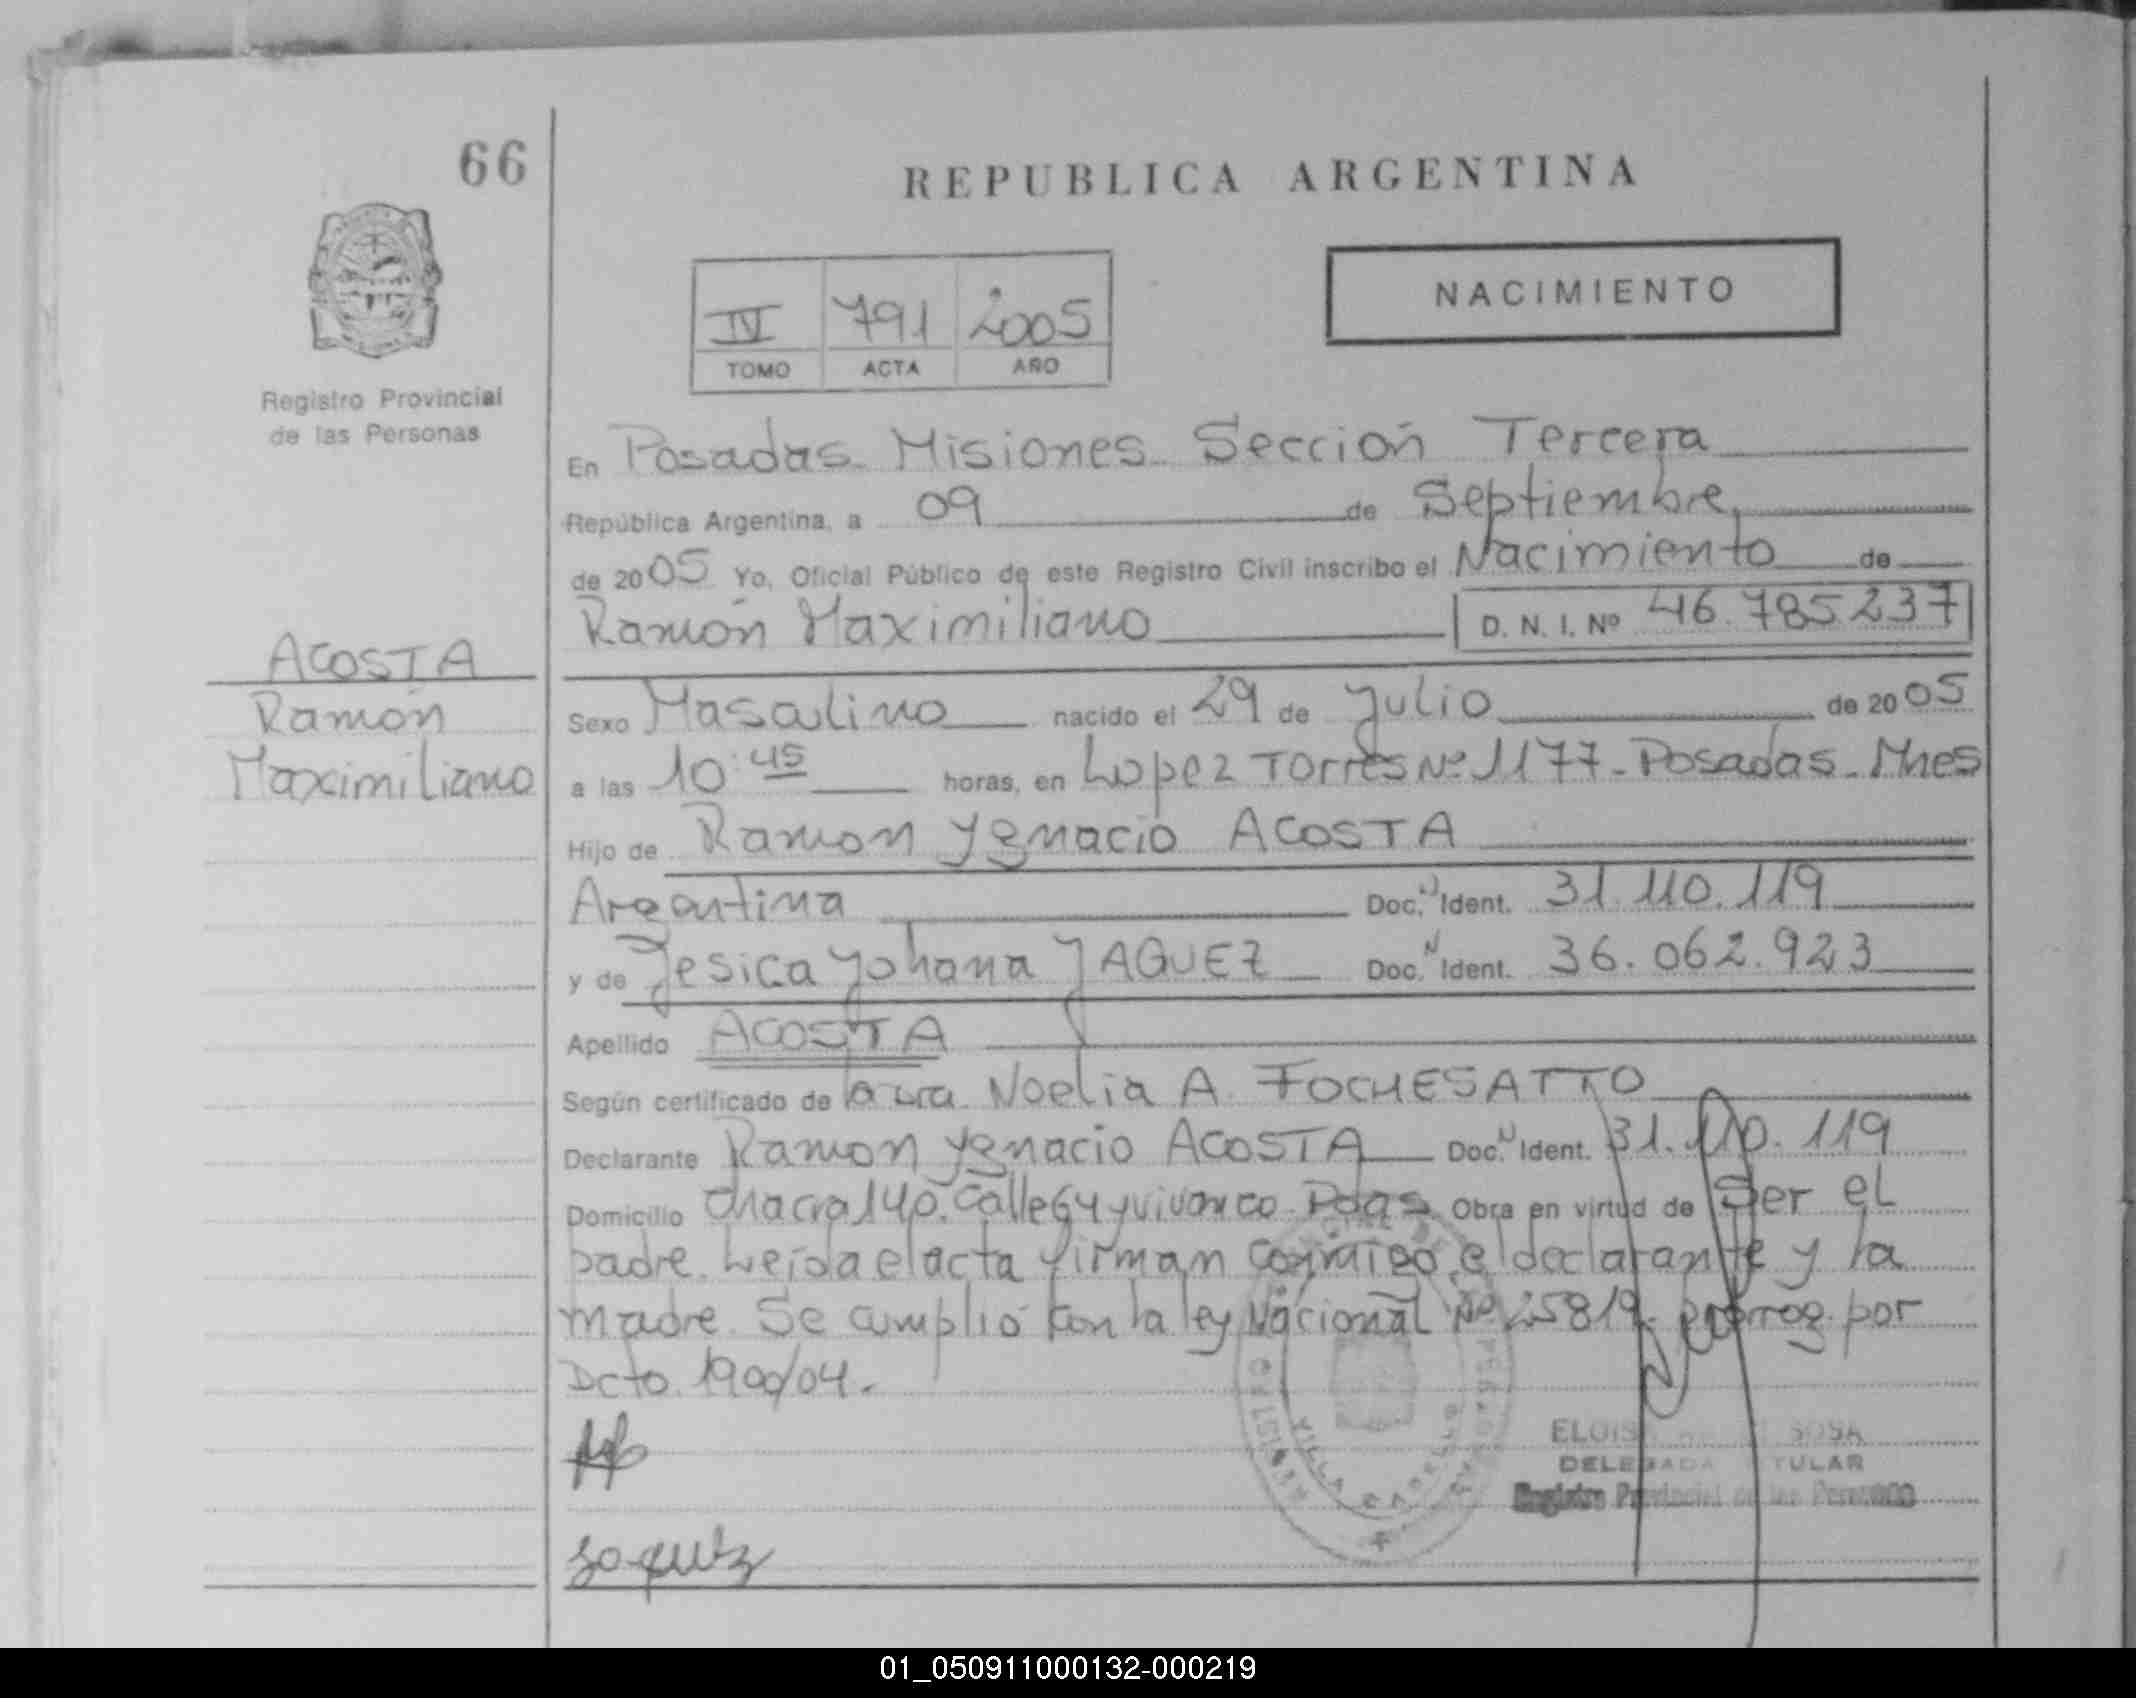 66
REPUBLICA ARGENTINA
NACIMIENTO
IV 791 2005
TOMO ACTA AÑO
Registro Provincial
de las Personas
En Posadas - Misiones - Sección Tercera
República Argentina, a 09 de Septiembre
de 2005 Yo, Oficial Público de este Registro Civil inscribo el Nacimiento de
Ramón Maximiliano D. N. I. Nº 46.785.237
ACOSTA
Ramón
Maximiliano
Sexo Masculino nacido el 29 de Julio de 2005
a las 10:45 horas, en Lopez Torres Nº 1177 - Posadas - Mnes
Hijo de Ramon Ygnacio ACOSTA
Argentina Doc. Ident. 31.110.119
y de Jesica Johana JAQUEZ Doc. Ident. 36.062.923
Apellido ACOSTA
Según certificado de la Dra. Noelia A. FOCHESATTO
Declarante Ramon Ygnacio ACOSTA Doc. Ident. 31.110.119
Domicilio Chacra 140. Calle 64 y vivanco - Pdas Obra en virtud de Ser el
padre. Leída el acta firman conmigo el declarante y la
madre. Se cumplió con la ley Nacional Nº 25819. prorrog. por
Dcto. 1900/04.
SOSA
DELEGADA TITULAR
Registro Provincial de las Personas
01_050911000132-000219